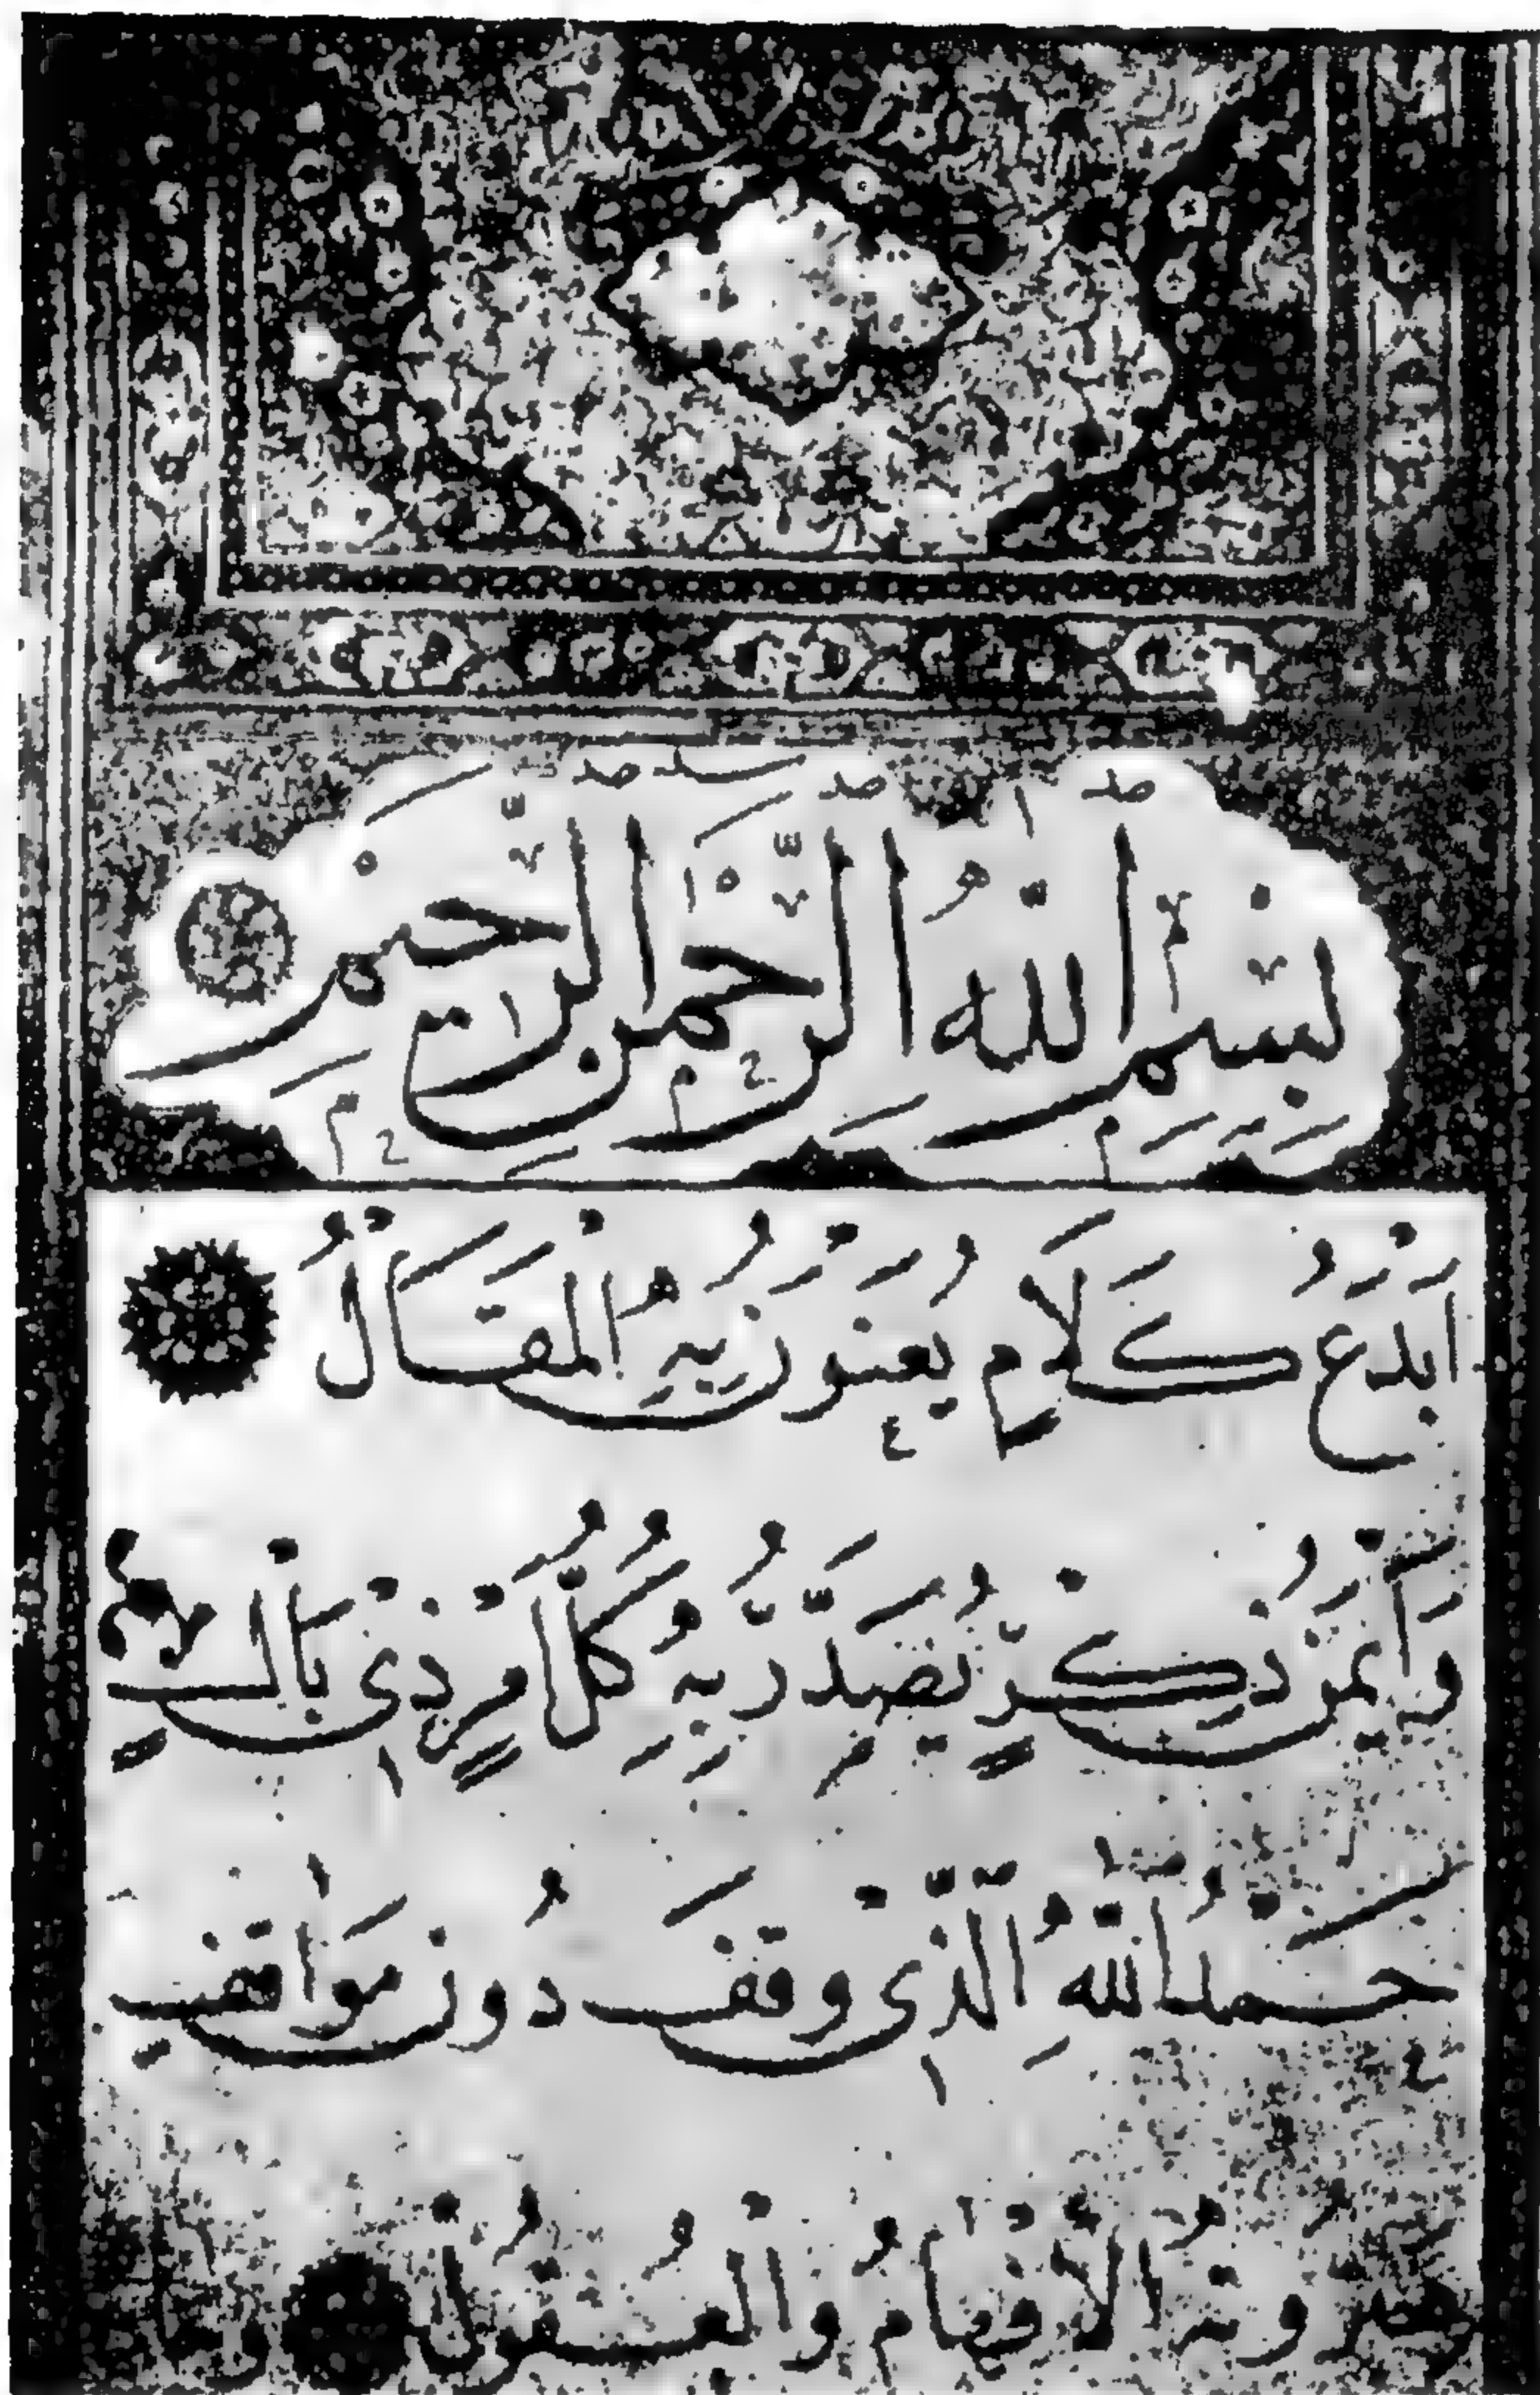 بِسْمِ اللّٰهِ الرَّحْمٰنِ الرَّحِيمِ
اَبْدَعُ كَلَامٍ يُعَنْوَنُ بِهِ الْمَقَالُ
وَاَيْمَنُ ذِكْرٍ تُصَدَّرُ بِهِ كُلُّ اَمْرٍ ذِي بَالٍ
حَمْدُ اللّٰهِ الَّذِي وَقَفَ دُونَ مَوَاقِفِ
الْاَفْهَامُ وَالْعُقُولُ